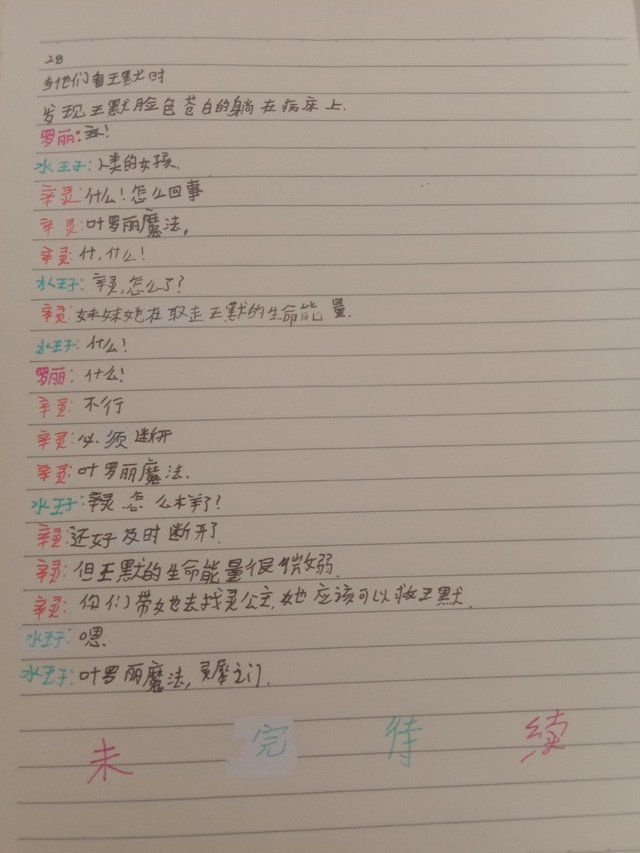 28
当他们看王默时
发现王默脸色苍白的躺在病床上.
罗丽:主!
水王子:人类的女孩.
辛灵:什么!怎么回事
辛灵:叶罗丽魔法,
辛灵:什,什么!
水王子:辛灵,怎么了?
辛灵:妹妹她在取走王默的生命能量.
水王子:什么!
罗丽:什么!
辛灵:不行
辛灵:必须断开
辛灵:叶罗丽魔法.
水王子:辛灵怎么样了?
辛灵:还好及时断开了.
辛灵:但王默的生命能量很微弱.
辛灵:你们带她去找灵公主,她应该可以救王默.
水王子:嗯.
水王子:叶罗丽魔法,灵犀之门.
未完待续